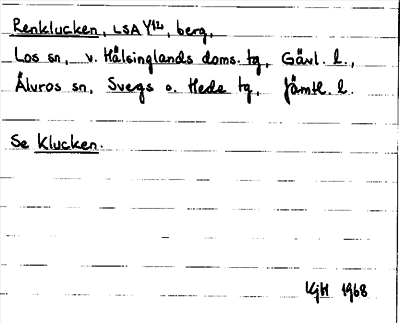 Renklucken, LSA Y42, berg,
Los sn, v. Hälsinglands doms. tg, Gävl. l.,
Älvros sn, Svegs o. Hede tg, Jämtl. l.
Se Klucken.
KjH 1968